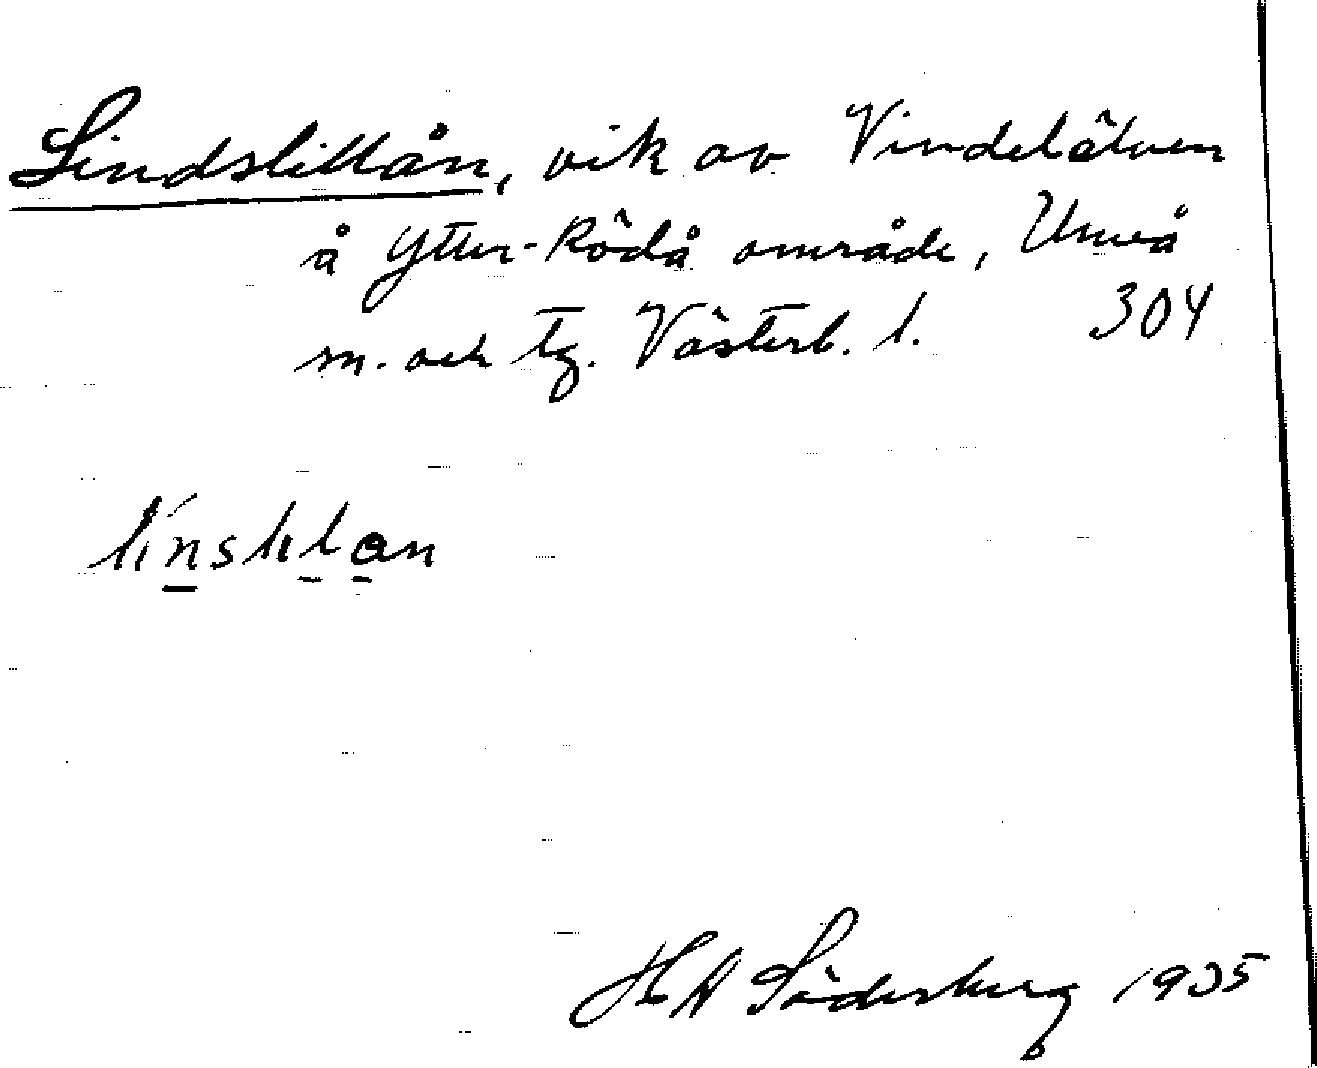 Lindslillån, vik av Vindelälven
å Ytter-Rödå område, Umeå
sn. och tg. Västerb. l. 304
H A Söderberg 1935